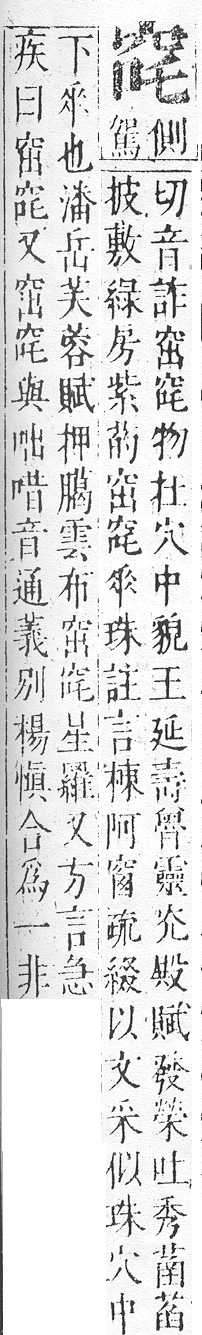 側
駕
切音詐窋物在穴中貌王延壽魯靈光殿賦發榮吐秀菡萏
披敷綠房紫菂窋𠂹珠註言棟阿窗疏綴以文采似珠穴中
下𠂹也潘岳芙蓉賦押臈雲布窋星羅又方言急
疾曰窋又窋與咄唶音通義別楊愼合爲一非